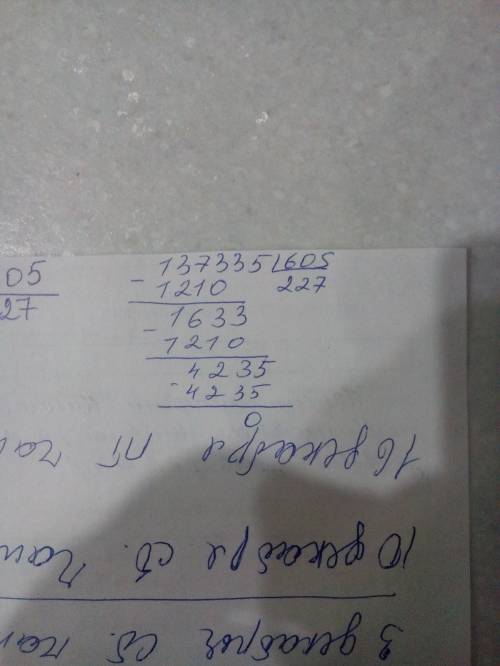 05
27
137335 | 605
- 1210 227
1633
- 1210
4235
- 4235
0
16 декабря пт
10 декабря сб.
3 декабря сб.